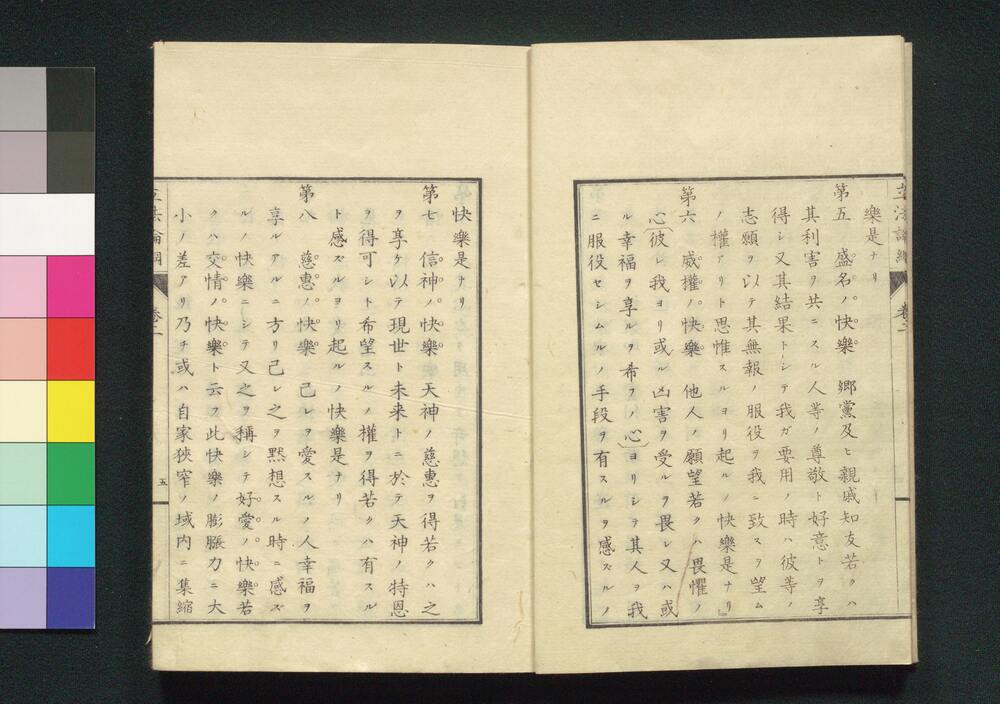 樂是ナリ
第五 盛名ノ快樂 鄉黨及ヒ親戚知友若クハ
其利害ヲ共ニスル人等ノ尊敬ト好意トヲ享
得シ又其結果トシテ我ガ要用ノ時ハ彼等ノ
志願ヲ以テ其無報ノ服役ヲ我ニ致スヲ望ム
ノ權アリト思惟スルヨリ起ルノ快樂是ナリ』
第六 威權ノ快樂 他人ノ願望若クハ畏懼ノ
心(彼レ我ヨリ或ル凶害ヲ受ルヲ畏レ又ハ或
ル幸福ヲ享ルヲ希フノ心)ヨリシテ其人ヲ我
ニ服役セシムルノ手段ヲ有スルヲ感ズルノ
快樂是ナリ
第七 信神ノ快樂 天神ノ慈惠ヲ得若クハ之
ヲ享ケ以テ現世ト未来トニ於テ天神ノ特恩
ヲ得可シト希望スルノ權ヲ得若クハ有スル
ト感ズルヨリ起ルノ快樂是ナリ
第八 慈惠ノ快樂 己レヲ愛スルノ人幸福ヲ
享ルアルニ方リ己レ之ヲ黙想スル時ニ感ズ
ルノ快樂ニシテ又之ヲ稱シテ好愛ノ快樂若
クハ交情ノ快樂ト云フ此快樂ノ膨脹力ニ大
小ノ差アリ乃チ或ハ自家狹窄ノ域内ニ集縮
立法論綱 卷二
五